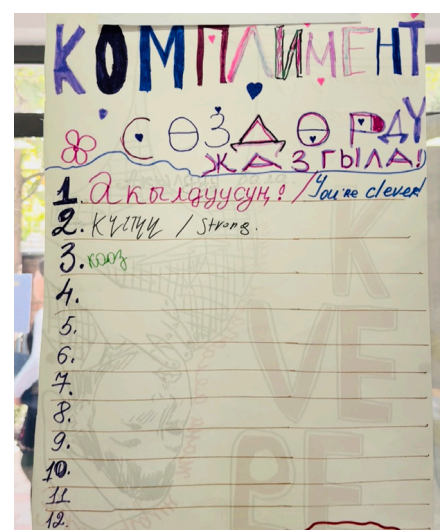 КОМПЛИМЕНТ
СӨЗДӨРДҮ
ЖАЗГЫЛА!
1. Акылдуусуң! / You're clever!
2. Күчтүү / Strong.
3. кооз
4.
5.
6.
7.
8.
9.
10.
11
12.